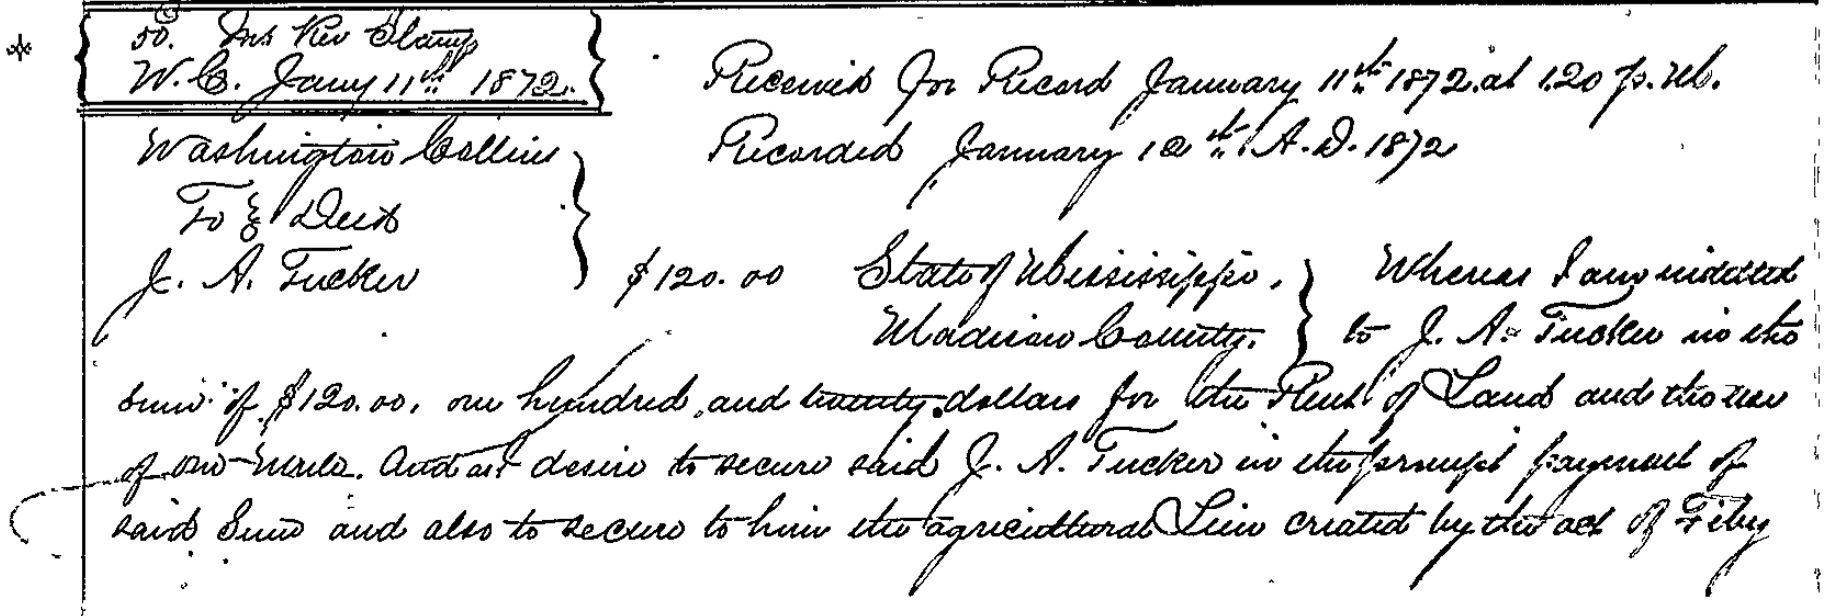 50. Ins Rev Stamp
W. C. Jany 11th 1872.
Received for Record January 11th 1872. at 1.20 p. M.
Washington Collins
Recorded January 12th A. D. 1872
To & Deed
J. A. Tucker
$120.00 State of Mississippi, Whereas I am indebted
Madison County. to J. A. Tucker in the
sum of $120.00, one hundred, and twenty dollars for the Rent of Land and the use
of one Mule. And as I desire to secure said J. A. Tucker in the prompt payment of
said Sum and also to secure to him the agricultural Lien created by the act of Feby